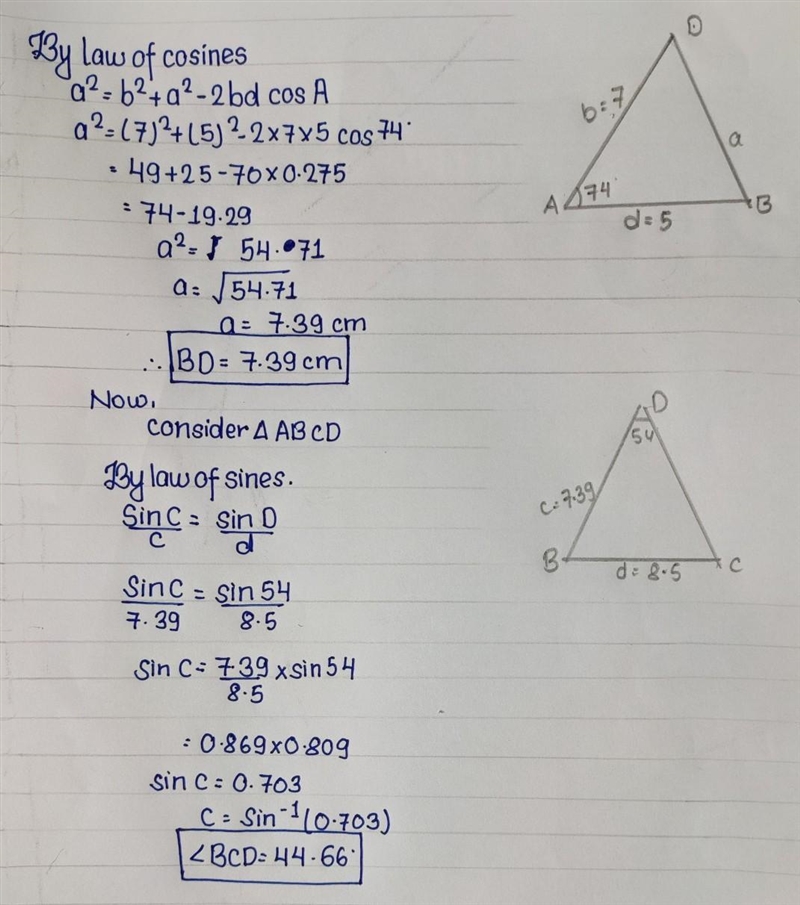 By law of cosines
a² = b² + a² - 2bd cos A
a² = (7)² + (5)² - 2×7×5 cos 74°
= 49 + 25 - 70 × 0.275
= 74 - 19.29
a² = 54.71
a = √54.71
a = 7.39 cm
∴ BD = 7.39 cm
Now,
consider Δ ABCD
By law of sines.
Sin C/c = sin D/d
Sin C/7.39 = sin 54/8.5
sin C = 7.39/8.5 × sin 54
= 0.869 × 0.809
sin C = 0.703
C = Sin⁻¹(0.703)
∠BCD = 44.66°
D
b = 7
a
A
74°
B
d = 5
D
54
c = 7.39
B
d = 8.5
C